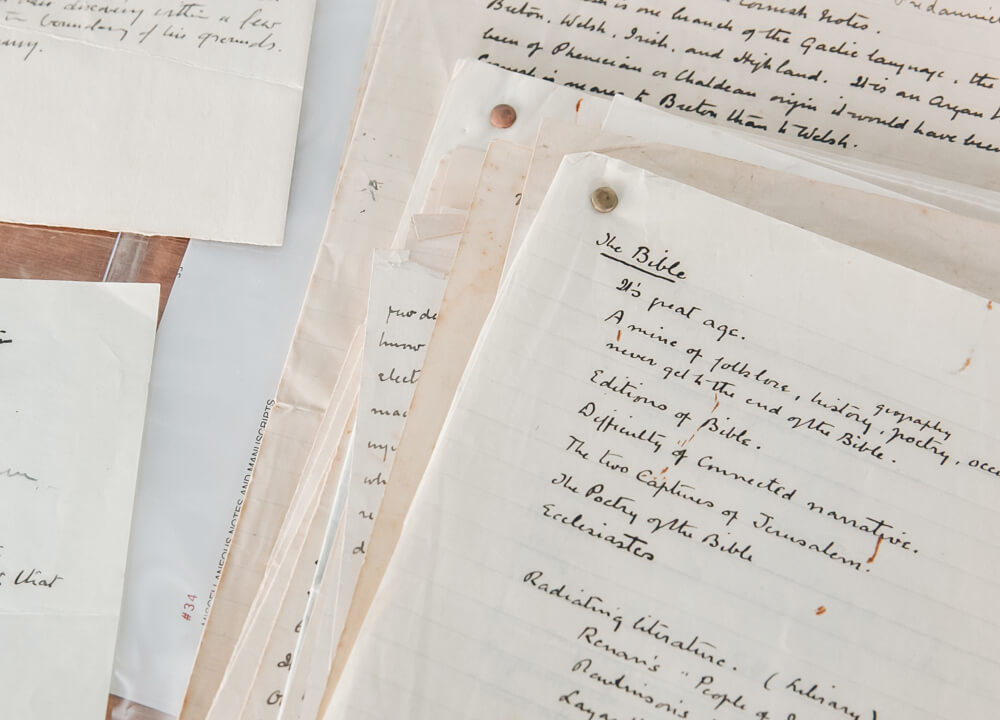 discovery within a few
boundary of his grounds.
Cornish Notes.
is one branch of the Gaelic language, the
Breton, Welsh, Irish, and Highland. It is an Aryan
been of Phenician or Chaldean origin it would have been
Cornish is nearer to Breton than to Welsh.
The Bible
It's great age.
A mine of folklore, history, geography
never get to the end of the Bible. poetry, occ
Editions of Bible.
Difficulty of connected narrative.
The two Captures of Jerusalem.
The Poetry of the Bible
Ecclesiastes
Radiating literature. (Literary)
Renan's "People of
Rawlinson's
Laya
know
elect
mac
wh
that
#34
MISCELLANEOUS NOTES AND MANUSCRIPTS